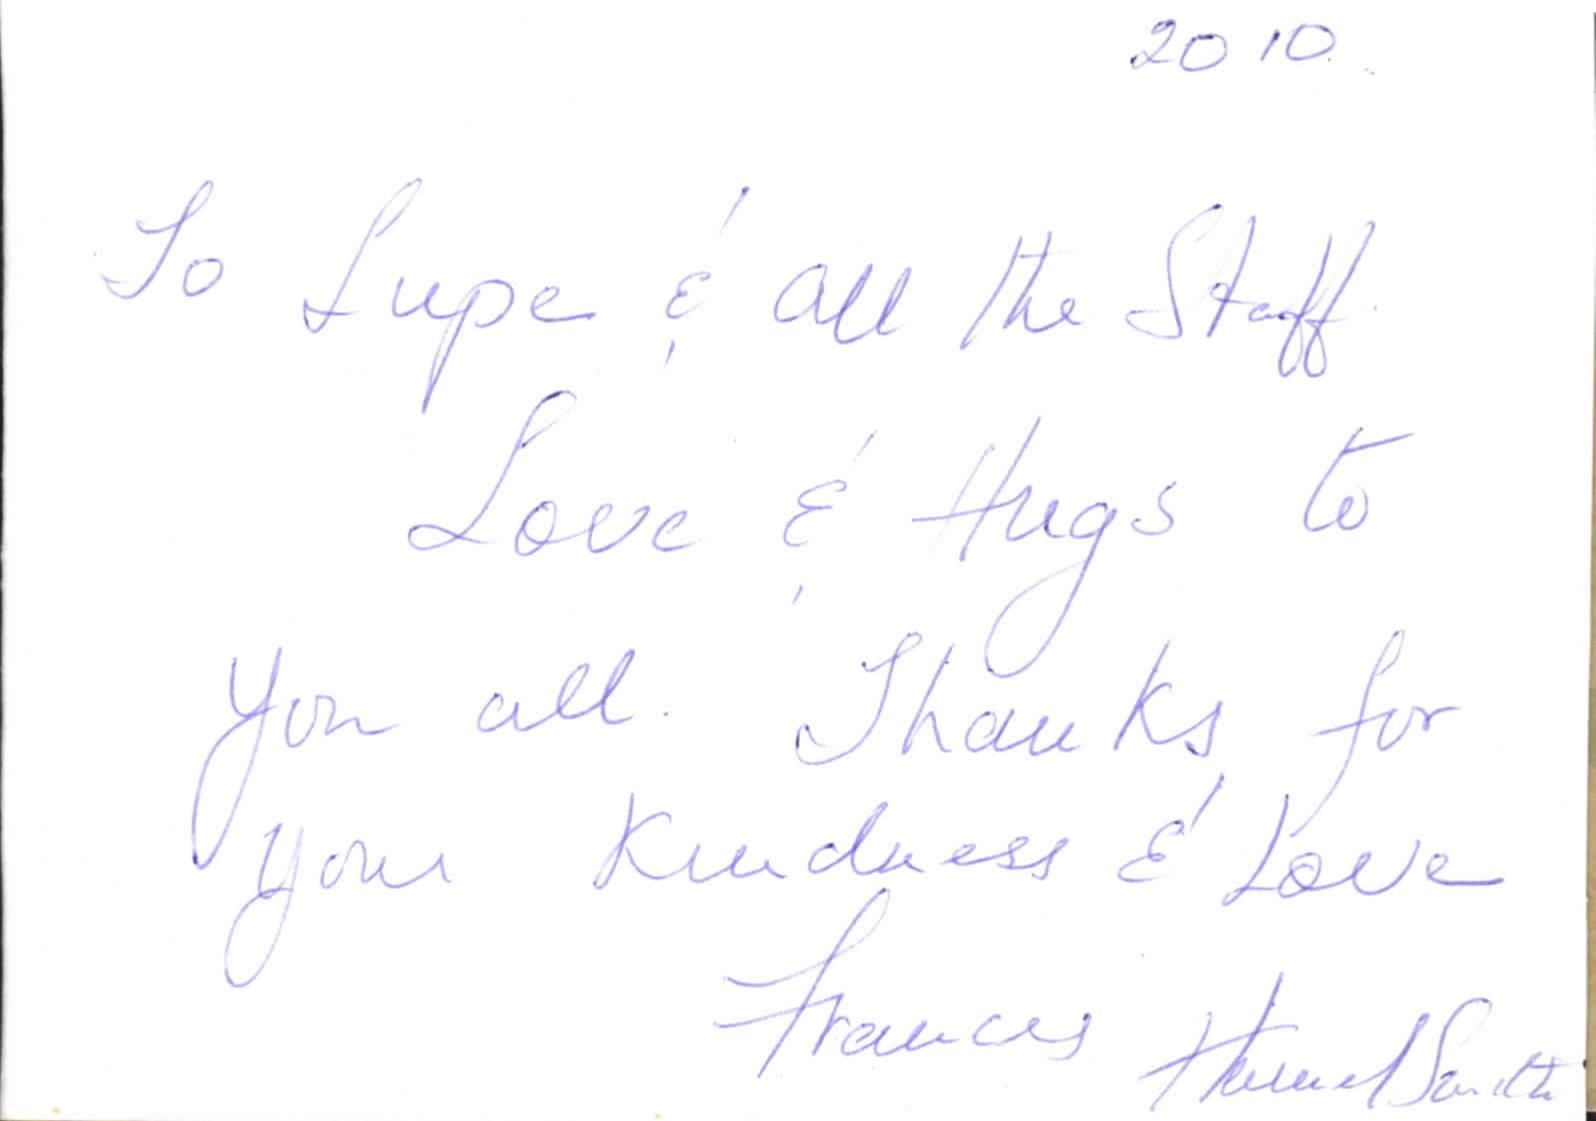 2010.
To Lupe & all the Staff.
Love & Hugs to
you all. Thanks for
your Kindness & Love
Frances Smith